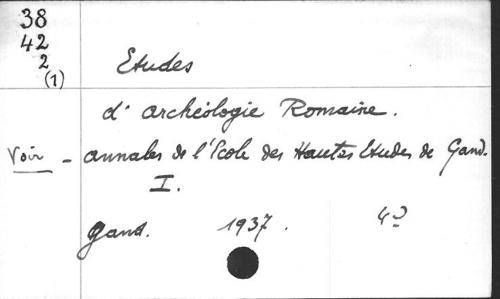 38
42
2
(1)
Etudes
d'archéologie Romaine.
Voir - annales de l'Ecole des Hautes Etudes de Gand.
I.
Gand. 1937. 4°